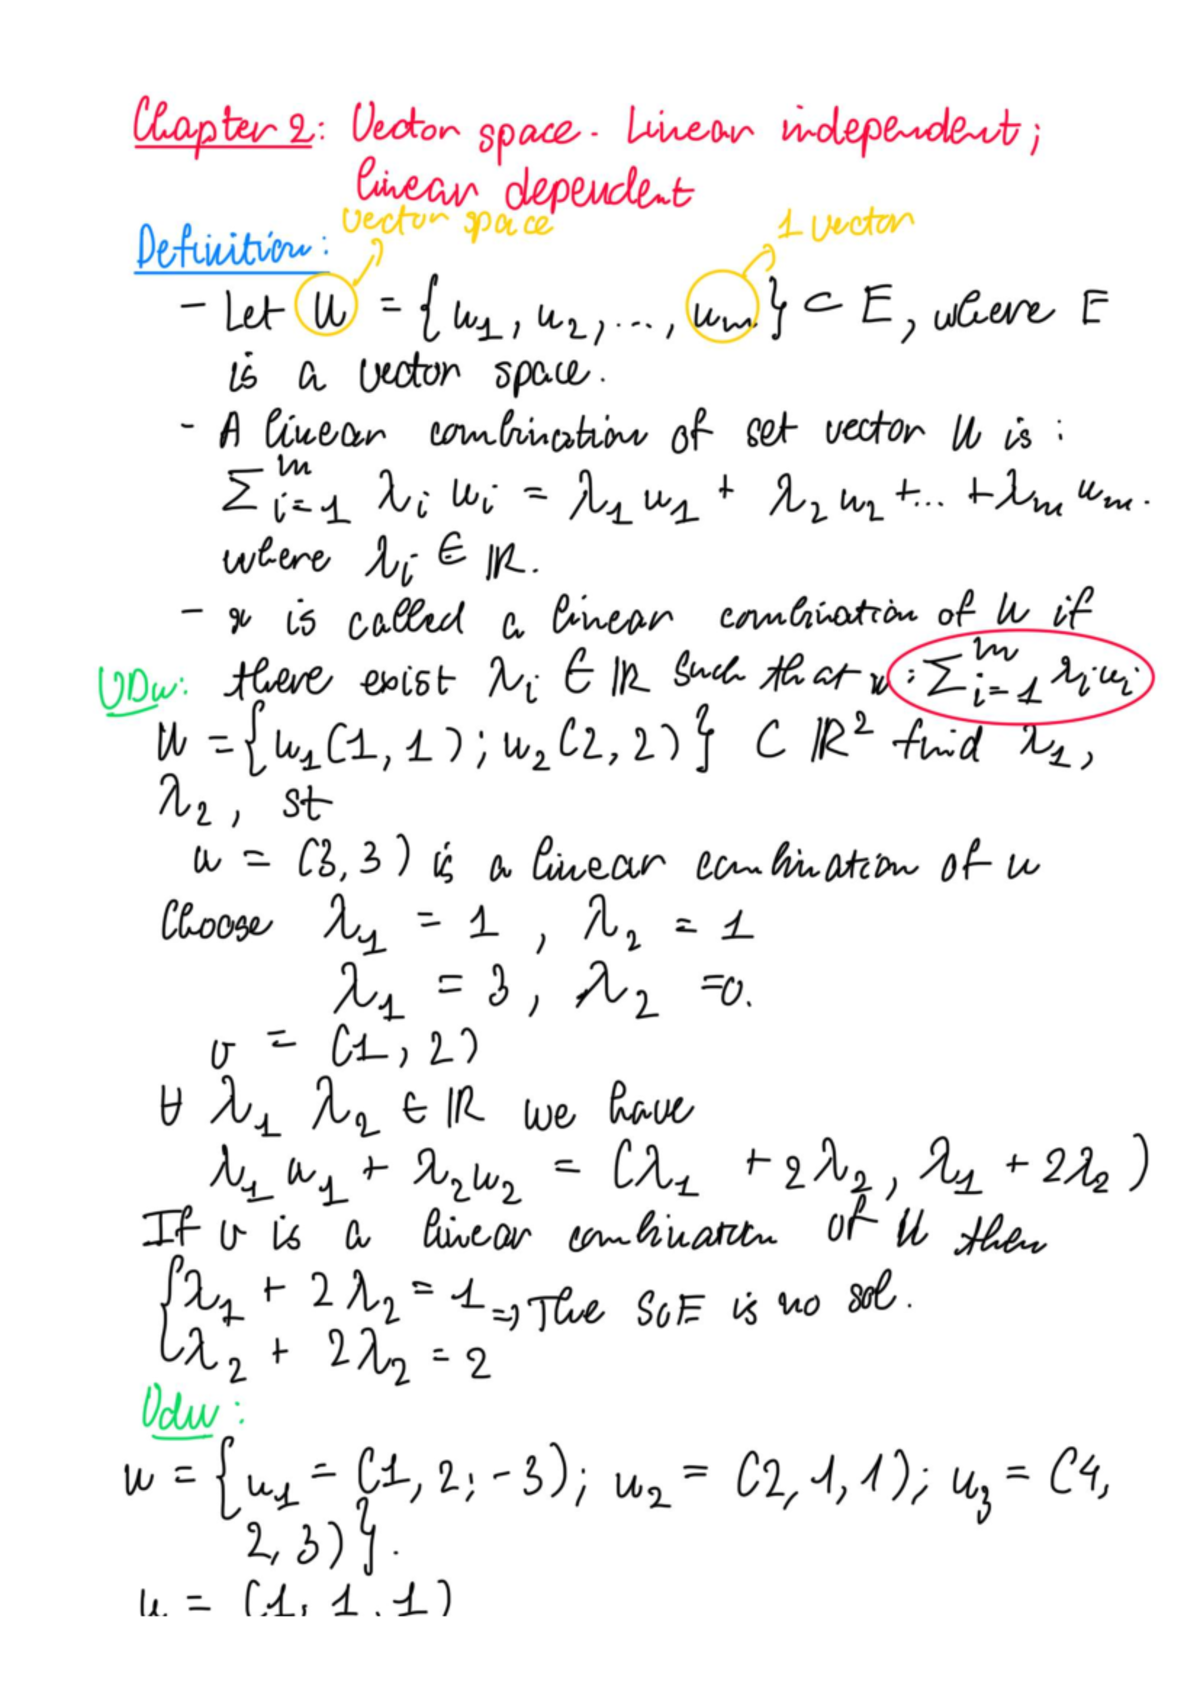 Chapter 2: Vector space. Linear independent;
linear dependent
vector space
1 vector
Definition:
- Let U = {u₁, u₂, ..., uₘ} ⊂ E, where E
is a vector space.
- A linear combination of set vector U is:
∑ᵢ₌₁ᵐ λᵢ uᵢ = λ₁u₁ + λ₂u₂ +... + λₘuₘ.
where λᵢ ∈ ℝ.
- x is called a linear combination of U if
there exist λᵢ ∈ ℝ such that x : ∑ᵢ₌₁ᵐ λᵢuᵢ
VDu:
U = {u₁(1, 1); u₂(2, 2)} ⊂ ℝ² find λ₁,
λ₂, st
u = (3, 3) is a linear combination of u
Choose λ₁ = 1, λ₂ = 1
λ₁ = 3, λ₂ =0.
v = (1, 2)
∀ λ₁ λ₂ ∈ ℝ we have
λ₁u₁ + λ₂u₂ = (λ₁ + 2λ₂, λ₁ + 2λ₂)
If v is a linear combination of U then
{λ₁ + 2λ₂ = 1 => The SoE is no sol.
λ₂ + 2λ₂ = 2
Vdu:
u = {u₁ = (1, 2; -3); u₂ = (2, 1, 1); u₃ = (4,
2, 3)}.
u = (1, 1, 1)